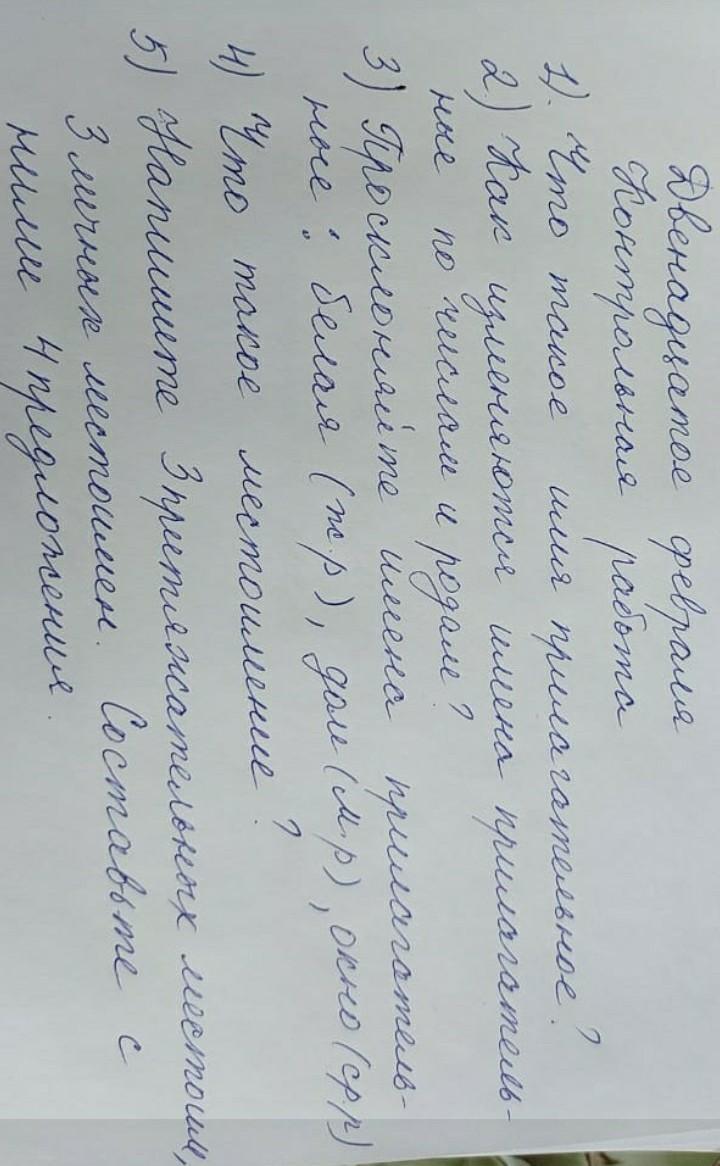 Двенадцатое февраля
Контрольная работа
1). Что такое имя прилагательное?
2.) Как изменяются имена прилагатель-
ные по числам и родам?
3) Просклоняйте имена прилагатель-
ные: белая (ж.р), дом (м.р), окно (ср.р)
4) Что такое местоимение?
5) Напишите 3 притяжательных местоим,
3 личных местоимен. Составьте с
ними 4 предложения.